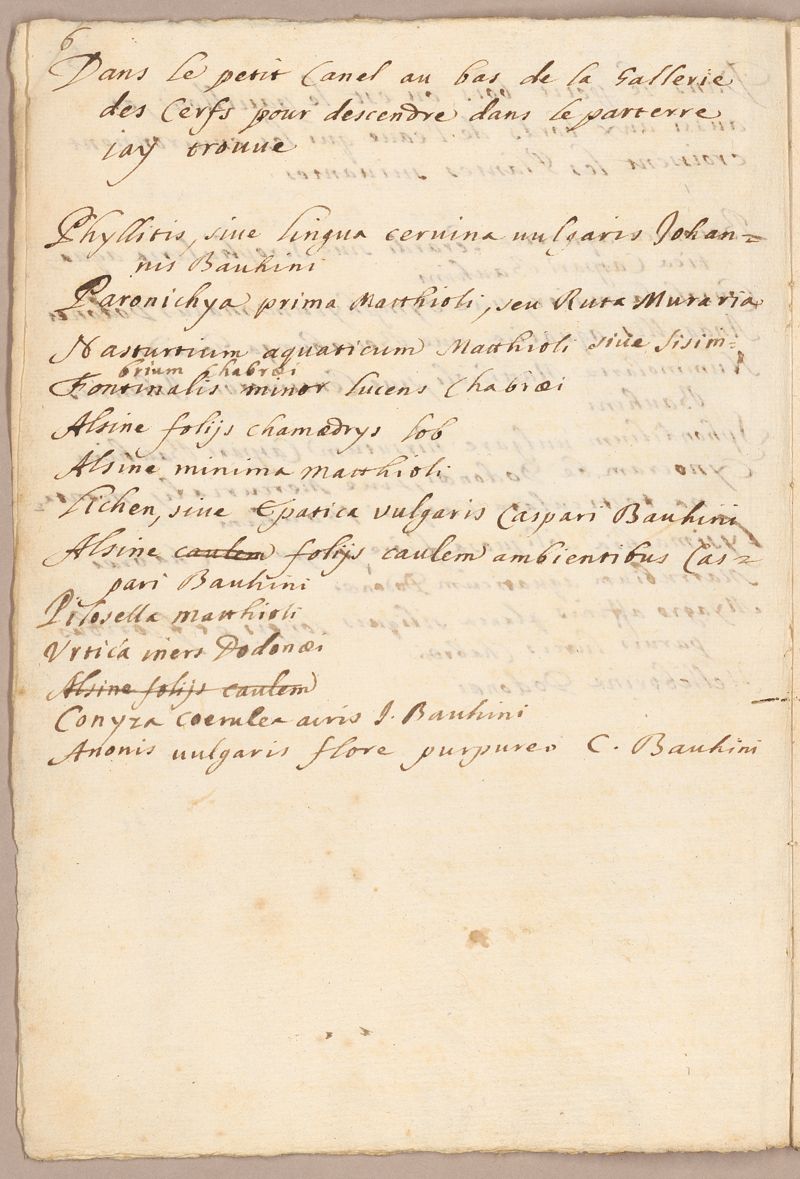 6
Dans le petit Canel au bas de la Gallerie
des Cerfs pour descendre dans le parterre
jay trouue
Phyllitis, siue lingua ceruina uulgaris Johan=
nis Bauhini
Paronichya prima Matthioli, seu Ruta Muraria
Nasturticum aquaticum Matthioli siue Sisim=
brium Chabræi
Fontinalis minor lucens Chabræi
Alsine folijs chamædrys lob
Alsine minima Matthioli
Lichen, siue Epatica vulgaris Caspari Bauhini
Alsine caulem folijs caulem ambientibus Cas=
pari Bauhini
Pilosella Matthioli
Vrtica iners Dodonæi
Alsine folijs caulem
Conyza coerulea acris J. Bauhini
Anonis uulgaris flore purpureo C. Bauhini